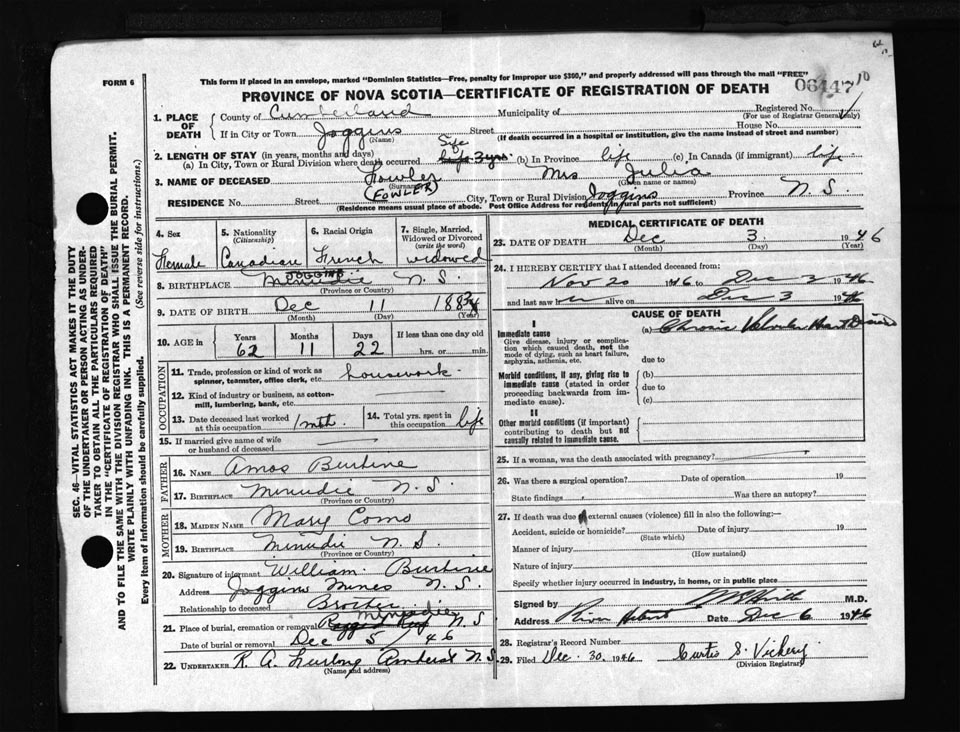 FORM 6
This form if placed in an envelope, marked "Dominion Statistics—Free, penalty for improper use $300," and properly addressed will pass through the mail "FREE"
06447 10
PROVINCE OF NOVA SCOTIA—CERTIFICATE OF REGISTRATION OF DEATH
1. PLACE OF DEATH County of Cumberland Municipality of Registered No. (For use of Registrar General only)
If in City or Town Joggins (Name) Street House No.
(If death occurred in a hospital or institution, give the name instead of street and number)
2. LENGTH OF STAY (in years, months and days)
(a) In City, Town or Rural Division where death occurred 3 yrs. (b) In Province life (c) In Canada (if immigrant) life
3. NAME OF DECEASED Fowler (FOWLER) (Surname) Mrs Julia (Given name or names)
RESIDENCE No. Street City, Town or Rural Division Joggins Province N. S.
(Residence means usual place of abode. Post Office Address for residents in rural parts not sufficient)
4. Sex Female
5. Nationality (Citizenship) Canadian
6. Racial Origin French
7. Single, Married, Widowed or Divorced (write the word) widowed
8. BIRTHPLACE Minudie JOGGINS N. S.
(Province or Country)
9. DATE OF BIRTH Dec (Month) 11 (Day) 1883 (Year)
10. AGE in Years 62 Months 11 Days 22 If less than one day old hrs. or min.
OCCUPATION
11. Trade, profession or kind of work as spinner, teamster, office clerk, etc. housework
12. Kind of industry or business, as cotton-mill, lumbering, bank, etc.
13. Date deceased last worked at this occupation 1 mth.
14. Total yrs. spent in this occupation life
15. If married give name of wife or husband of deceased
FATHER
16. NAME Amos Burbine
17. BIRTHPLACE Minudie N. S.
(Province or Country)
MOTHER
18. MAIDEN NAME Mary Como
19. BIRTHPLACE Minudie N. S.
(Province or Country)
20. Signature of informant William Burbine
Address Joggins Mines N. S.
Relationship to deceased Brother
21. Place of burial, cremation or removal Minudie N S
Date of burial or removal Dec 5 / 46
22. UNDERTAKER R. A. Furlong Amherst N. S.
(Name and address)
MEDICAL CERTIFICATE OF DEATH
23. DATE OF DEATH Dec (Month) 3. (Day) 1946 (Year)
24. I HEREBY CERTIFY that I attended deceased from:
Nov 20 1946 to Dec 3 1946
and last saw h er alive on Dec 3 1946
CAUSE OF DEATH
I
Immediate cause
Give disease, injury or complication which caused death, not the mode of dying, such as heart failure, asphyxia, asthenia, etc.
(a) Chronic Valvular Heart Disease
due to
Morbid conditions, if any, giving rise to immediate cause (stated in order proceeding backwards from immediate cause).
(b)
due to
(c)
II
Other morbid conditions (if important) contributing to death but not causally related to immediate cause.
25. If a woman, was the death associated with pregnancy?
26. Was there a surgical operation? Date of operation 19
State findings Was there an autopsy?
27. If death was due to external causes (violence) fill in also the following:—
Accident, suicide or homicide? Date of injury 19
(State which)
Manner of injury
(How sustained)
Nature of injury
Specify whether injury occurred in industry, in home, or in public place
Signed by M.D.
Address River Hebert Date Dec 6 1946
28. Registrar's Record Number
29. Filed Dec. 30. 1946 Curtis S. Vickery
(Division Registrar)
SEC. 46—VITAL STATISTICS ACT MAKES IT THE DUTY
OF THE UNDERTAKER OR PERSON ACTING AS UNDER-
TAKER TO OBTAIN ALL THE PARTICULARS REQUIRED
IN THE "CERTIFICATE OF REGISTRATION OF DEATH"
AND TO FILE THE SAME WITH THE DIVISION REGISTRAR WHO SHALL ISSUE THE BURIAL PERMIT.
WRITE PLAINLY WITH UNFADING INK. THIS IS A PERMANENT RECORD.
Every item of information should be carefully supplied. (See reverse side for instructions.)